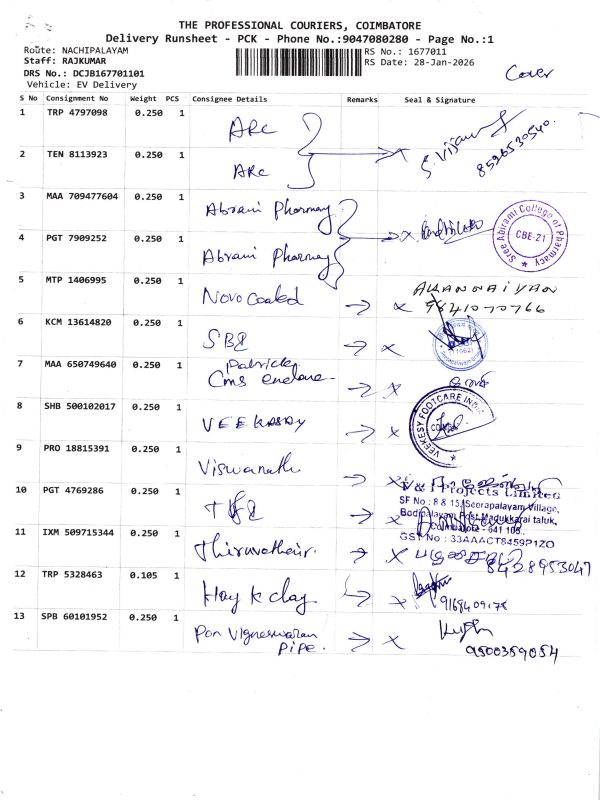 THE PROFESSIONAL COURIERS, COIMBATORE
Delivery Runsheet - PCK - Phone No.:9047080280 - Page No.:1
Route: NACHIPALAYAM
RS No.: 1677011
Staff: RAJKUMAR
RS Date: 28-Jan-2026
DRS No.: DCJB167701101
Cover
Vehicle: EV Delivery
S No Consignment No Weight PCS Consignee Details Remarks Seal & Signature
1 TRP 4797098 0.250 1 ARC
S. Vijay
8526530540.
2 TEN 8113923 0.250 1 ARC
3 MAA 709477604 0.250 1 Abrami Pharmay
Sree Abirami College of Pharmacy
CBE-21
4 PGT 7909252 0.250 1 Abrami Pharmay
5 MTP 1406995 0.250 1 Novo Coated
9841070766
6 KCM 13614820 0.250 1 SBI
7 MAA 650749640 0.250 1 Patricks
Cms enclave
8 SHB 500102017 0.250 1 VEEKASAY
VEEKESY FOOTCARE INDIA
9 PRO 18815391 0.250 1 Viswanath
Projects Limited
SF No : 8 & 15, Seerapalayam Village,
Bodipalayam Post, Madukkarai taluk,
Coimbatore - 641 105.
GST No : 33AAACT8459P1ZO
10 PGT 4769286 0.250 1
11 IXM 509715344 0.250 1
8428953047
12 TRP 5328463 0.105 1 Hay k clay
13 SPB 60101952 0.250 1 Pon Vigneswaran
Pipe.
9500359054